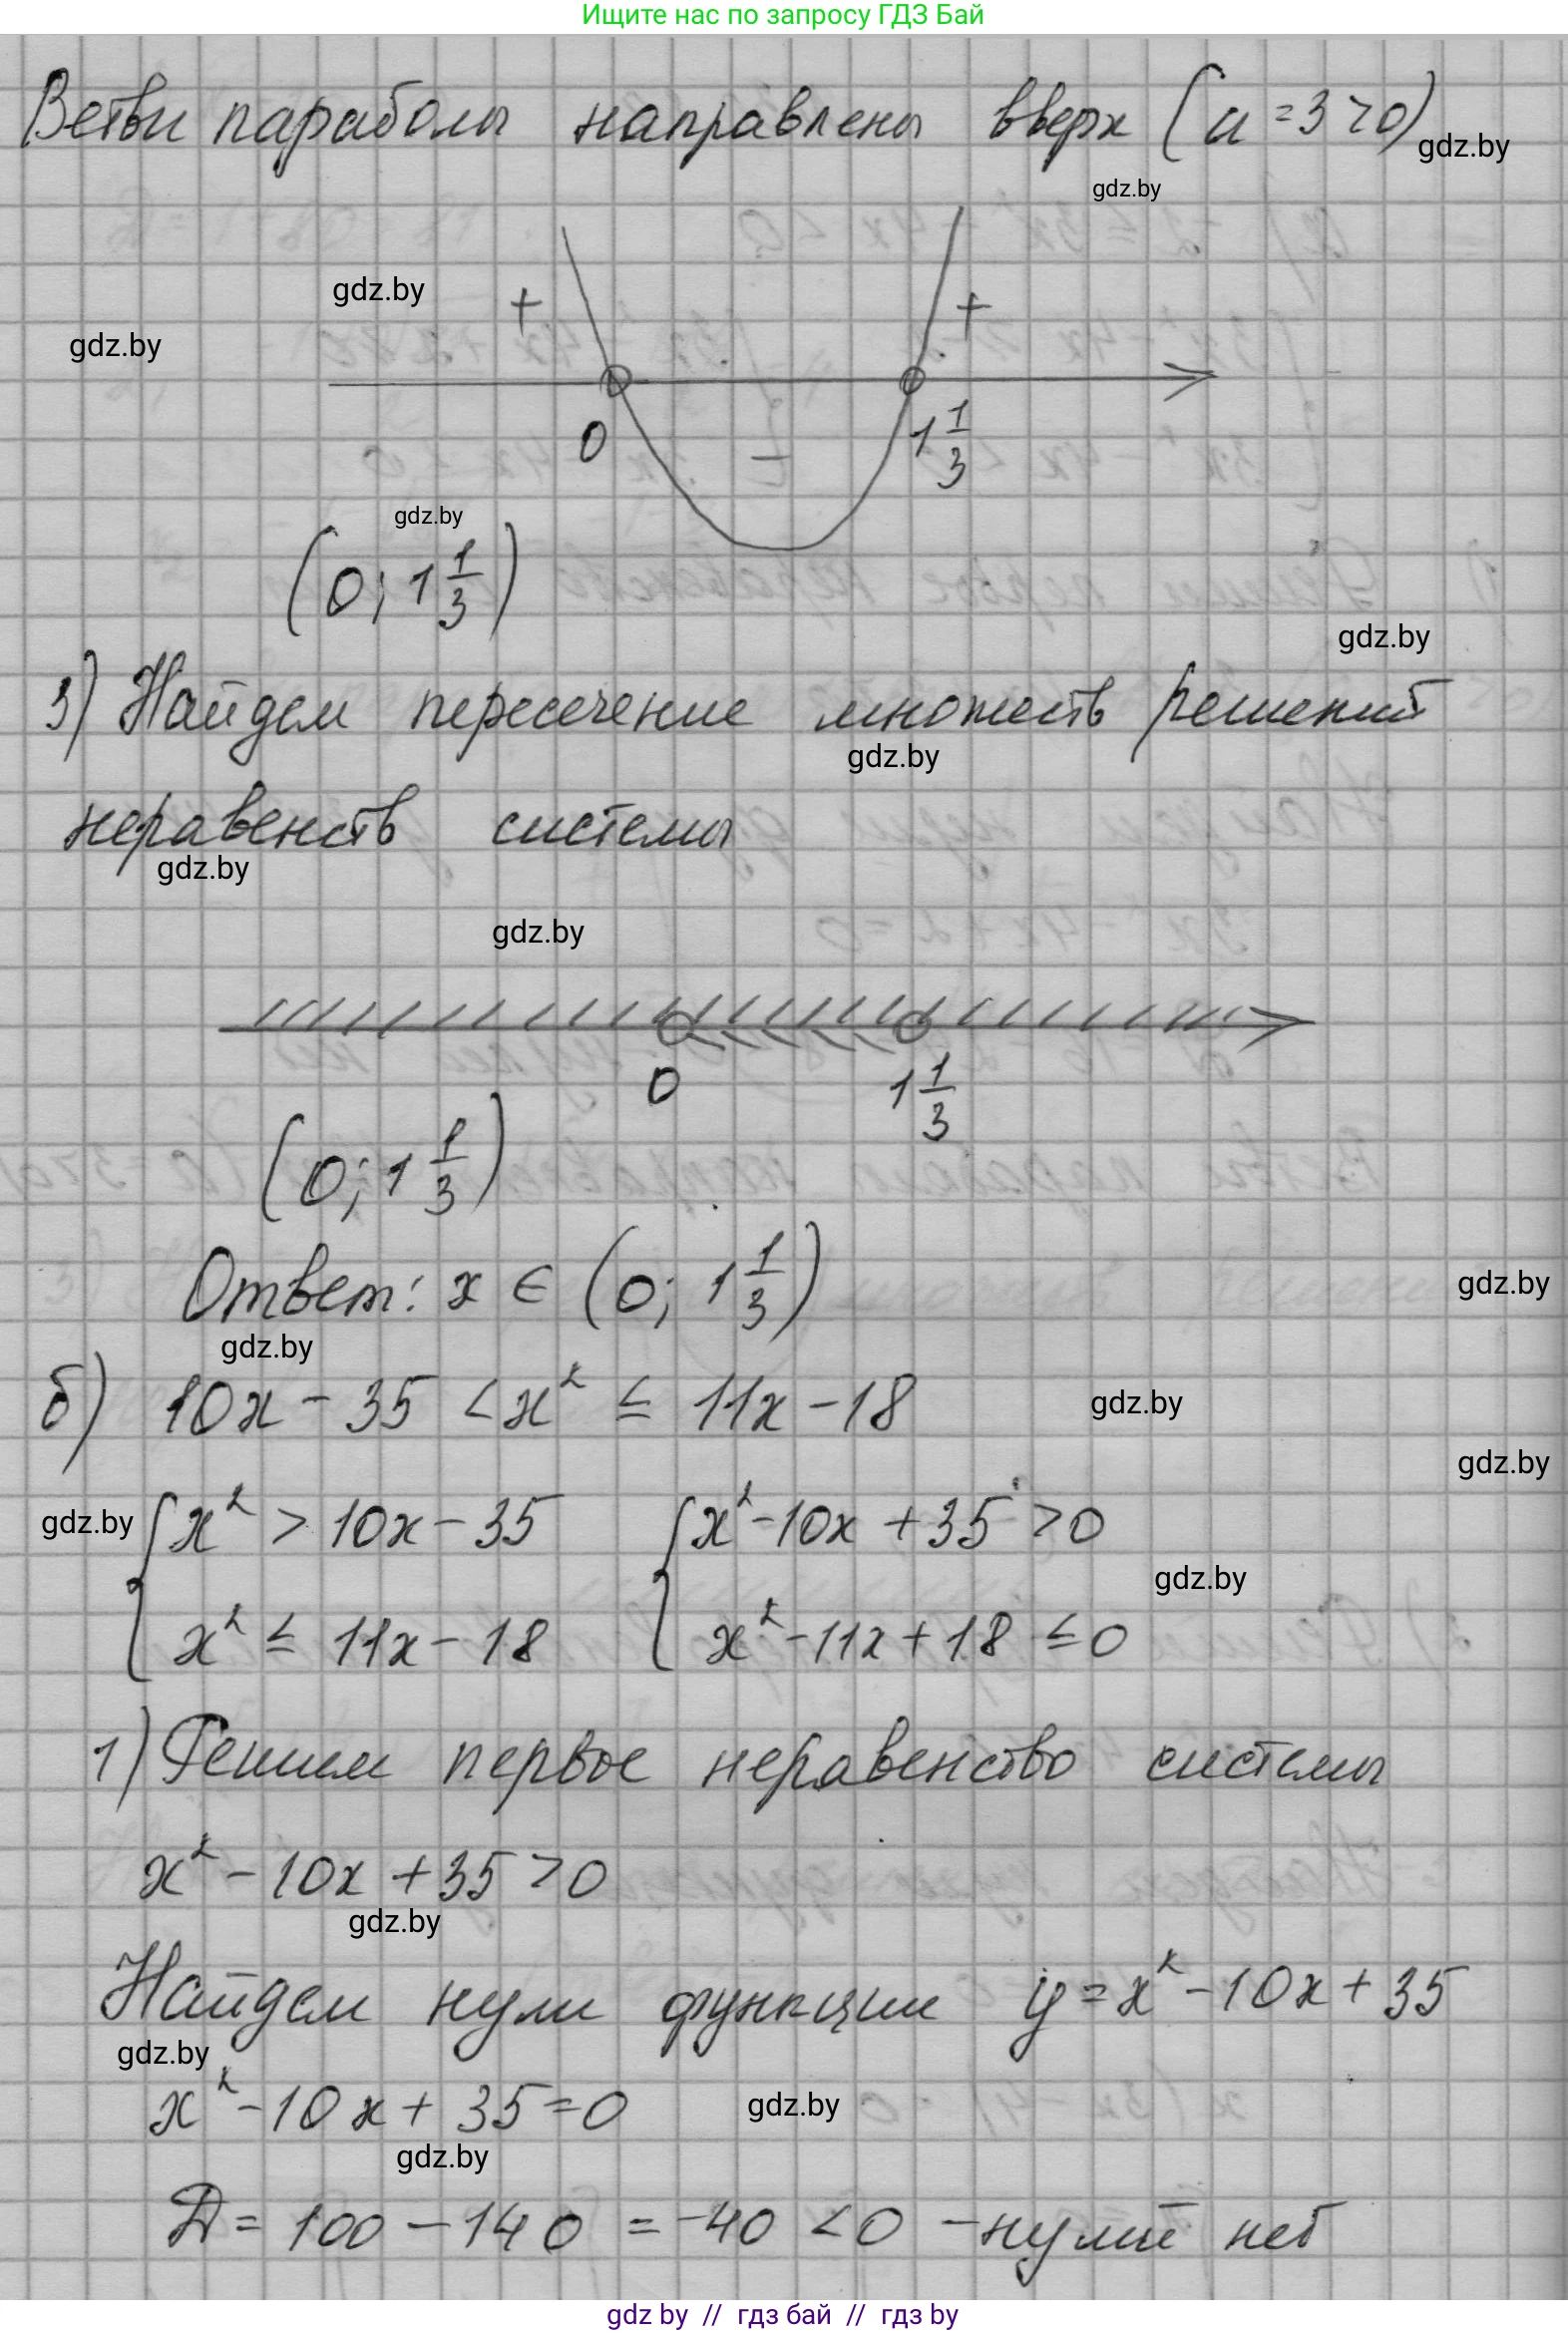 Ищите нас по запросу ГДЗ Бай
Ветви параболы направлены вверх (a = 3 > 0)
gdz.by
gdz.by
gdz.by
+ +
gdz.by
0 1 1/3
−
gdz.by
(0; 1 1/3)
gdz.by
3) Найдем пересечение множеств решений
gdz.by
неравенств системы
gdz.by
gdz.by
0 1 1/3
(0; 1 1/3)
Ответ: x ∈ (0; 1 1/3)
gdz.by
gdz.by
б) 10x − 35 < x² ≤ 11x − 18
gdz.by
gdz.by
{ x² > 10x − 35 { x² − 10x + 35 > 0
gdz.by
gdz.by
x² ≤ 11x − 18 x² − 11x + 18 ≤ 0
1) Решим первое неравенство системы
x² − 10x + 35 > 0
gdz.by
Найдем нули функции y = x² − 10x + 35
gdz.by
x² − 10x + 35 = 0
gdz.by
gdz.by
Д = 100 − 140 = −40 < 0 − нулей нет
gdz by // гдз бай // гдз by